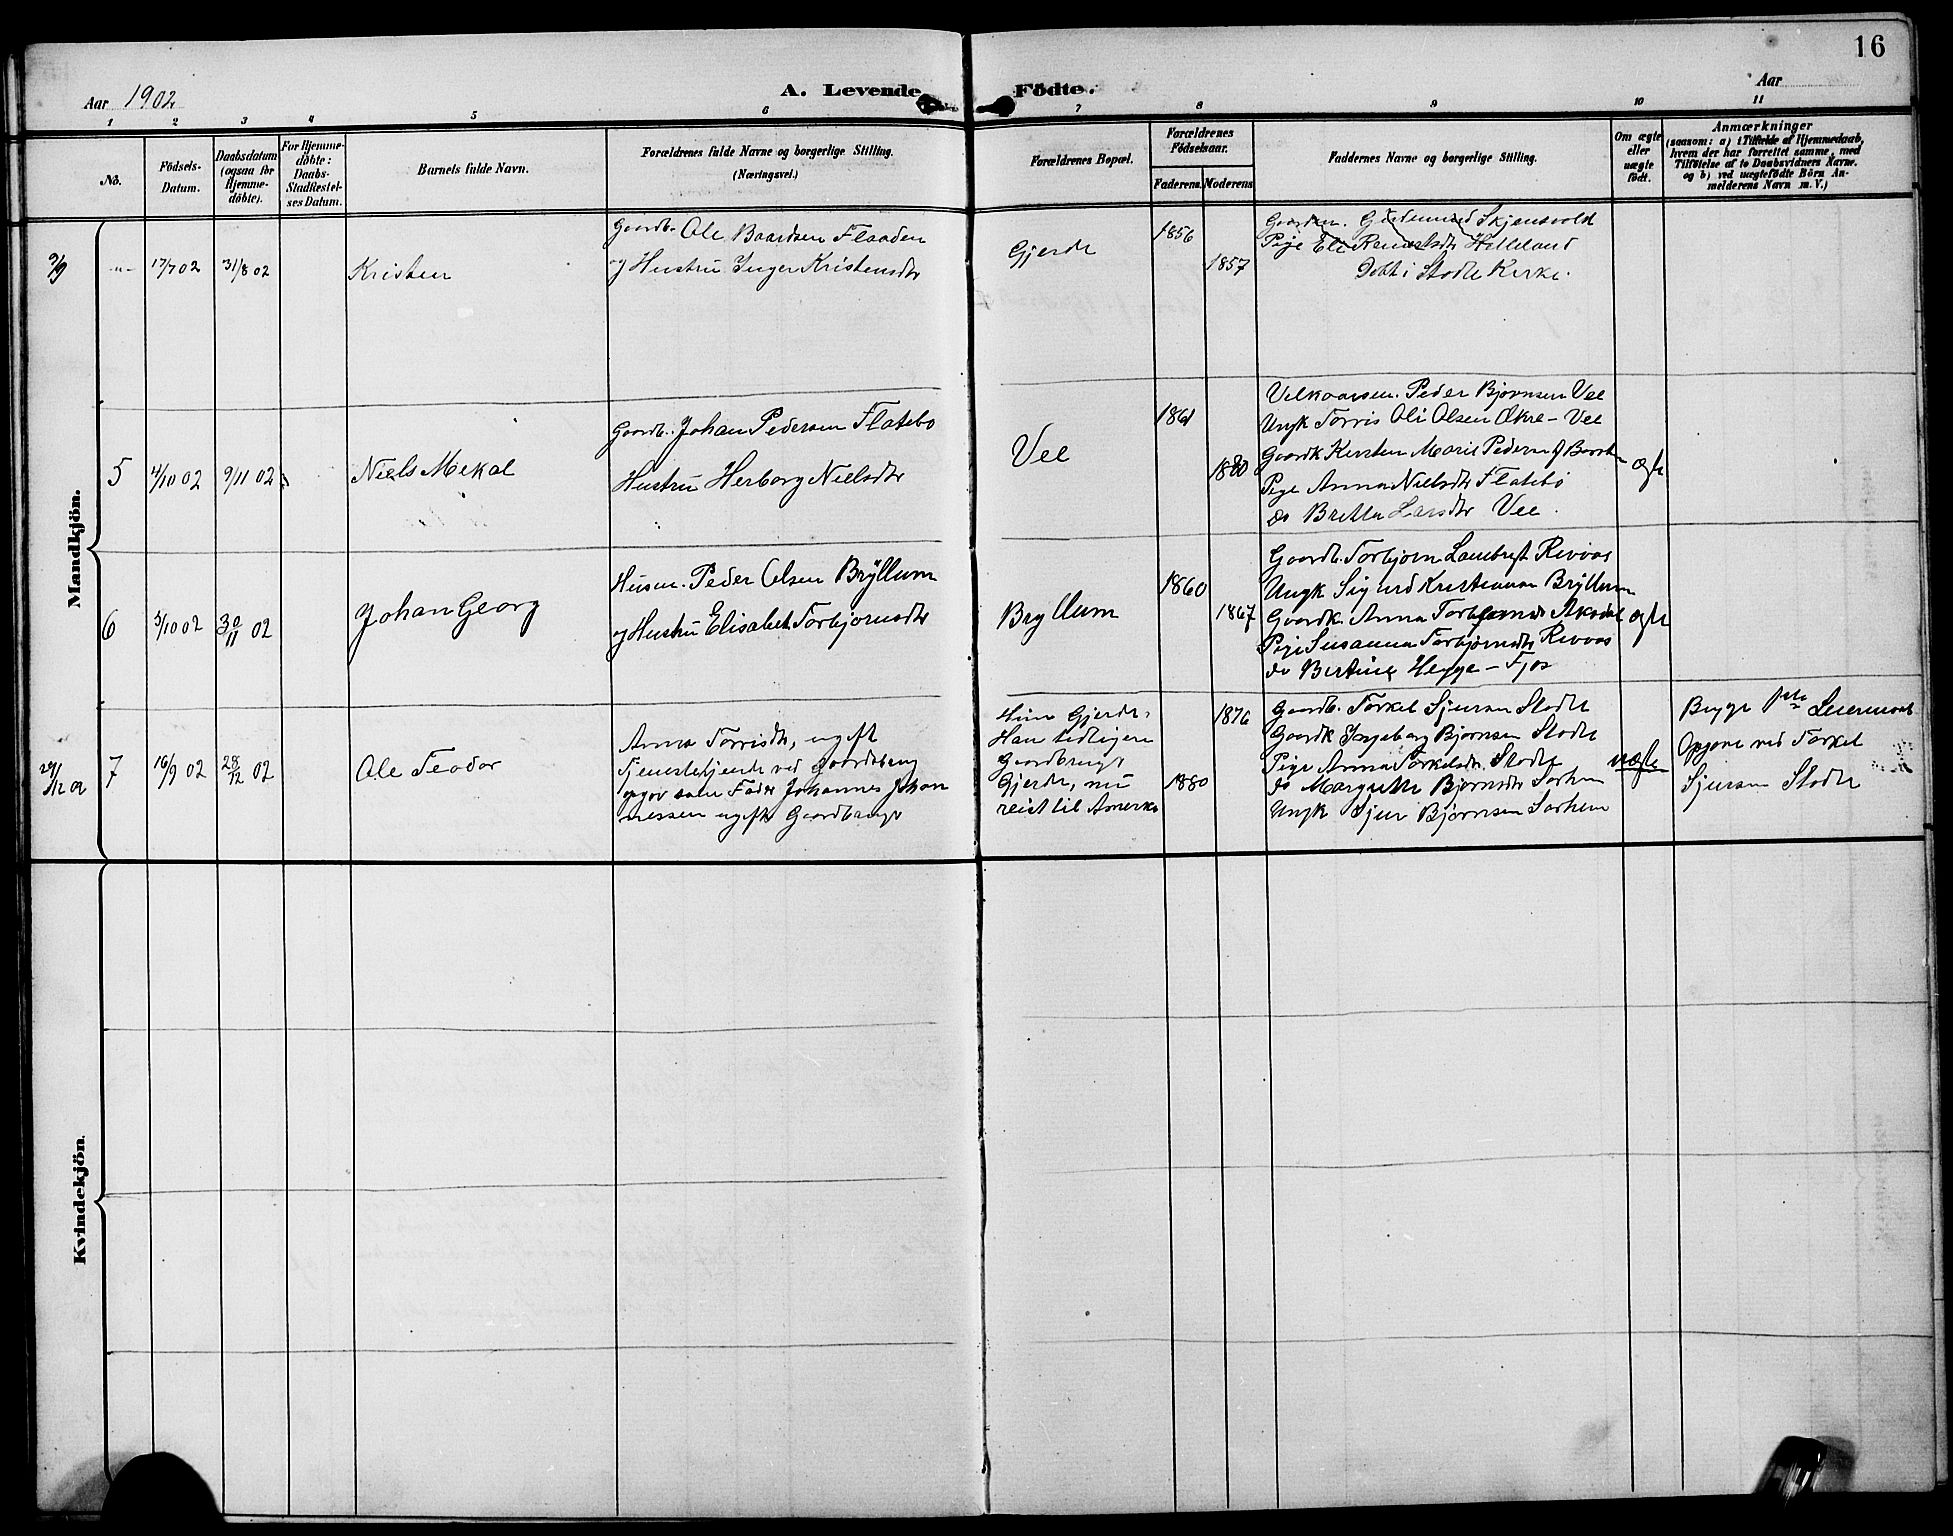 16
Aar 1902
A. Levende Födte.
Aar
1 2 3 4 5 6 7 8 9 10 11
No.
Födsels-Datum.
Daabsdatum (ogsaa for Hjemme-döbte).
For Hjemme-döbte: Daabs-Stadfæstel-ses Datum.
Barnets fulde Navn.
Forældrenes fulde Navne og borgerlige Stilling. (Næringsvei.)
Forældrenes Bopæl.
Forældrenes Födselsaar.
Faderens. Moderens.
Faddernes Navne og borgerlige Stilling.
Om ægte eller uægte födt.
Anmærkninger
(saasom: a) i Tilfælde af Hjemmedaab,
hvem der har forrettet samme, med
Tilföielse af to Daabsvidners Navne.
og b) ved uægtefödte Börn An-
melderens Navn m. V.)
Mandkjön.
-"-
17/7 02
31/8 02
Kristen
Gaardb. Ole Baardsen Flaaden
og Hustru Inger Kristensdtr
Gjerde
1856
1857
Skjensvold
Pige Eli Helleland
Döbt i Stodle Kirke.
5
4/10 02
9/11 02
Niels Mekal
Gaardb. Johan Pedersen Flatebö
Hustru Herborg Nielsdtr
Vee
1861
1880
Peder Björnsen Vee
Ungk Torris Oli Olsen Økre - Vee
Gaardk Kirsten Marie
Pige Anna Nielsdtr Flatebö
do Britta Larsdtr Vee.
ægte
6
3/10 02
30/11 02
Johan Georg
Husm. Peder Olsen Bryllum
og Hustru Elisabet Torbjörnsdtr
Bryllum
1860
1867
Gaardb. Torbjörn Revvas
Ungk Sigurd Kristiansen Bryllum
Gaardk. Anna Aksdal
Pige Susanna Torbjörnsdtr Revvas
do Bertine Hegge - Fjös
ægte
29/12 02
7
16/9 02
28/12 02
Ole Teodor
Anna Torrisdtr, ugift
Tjenestetjente ved Gaardsbrug
opgav som Fader Johannes Johan
nessen ugift Gaardbruger
Hun Gjerde,
Han tidligere
Gaardbruger
Gjerde, nu
reist til Amerka
1876
1880
Gaardb. Torkel Sjursen Stodle
Gaardk Ingeborg Björnsen Stodle
Pige Anna Torkelsdtr. Stodle
do Margrethe Björnsdtr Sörheim
Ungk Sjur Björnsen Sörheim
uægte
Begge 1ste Leiermaal
Opgave ved Torkel
Sjursen Stodle
Kvindekjön.